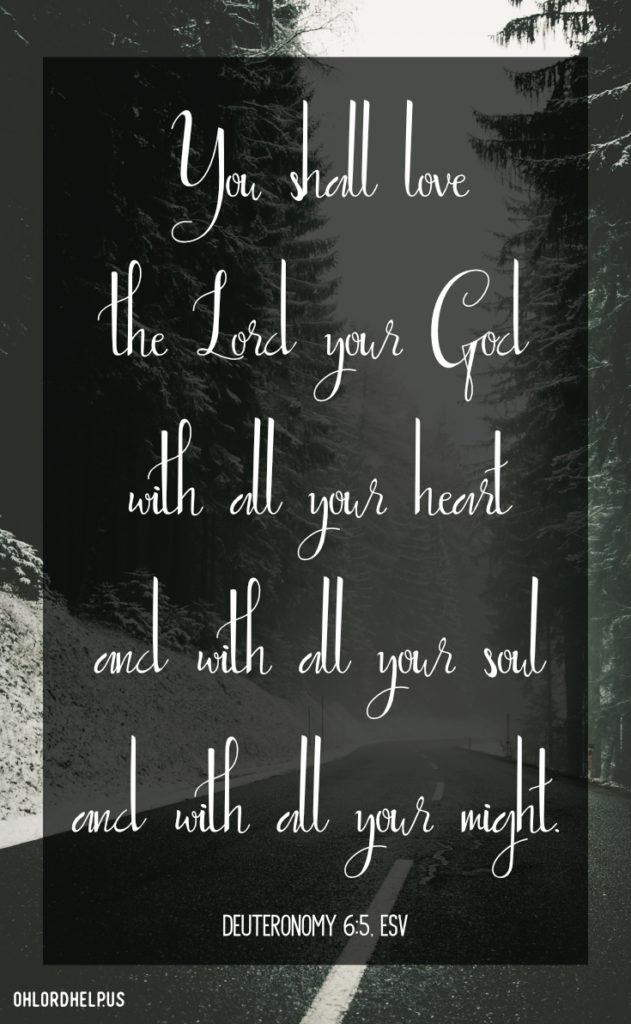 You shall love
the Lord your God
with all your heart
and with all your soul
and with all your might.
DEUTERONOMY 6:5, ESV
OHLORDHELP.US